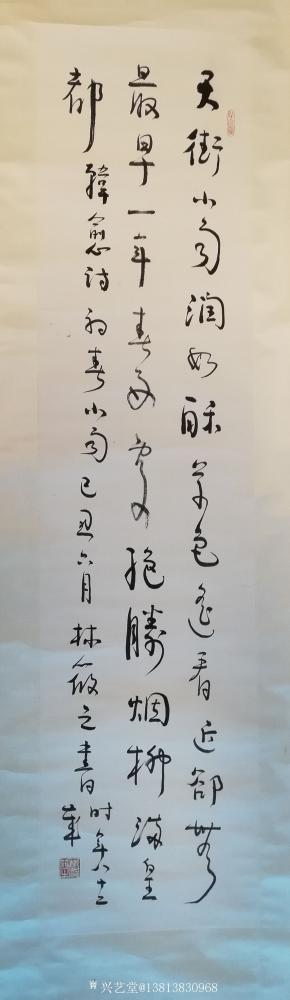 天街小雨润如酥草色遥看近却无
最早一年春好处绝胜烟柳满皇
都 韩愈诗初春小雨己丑六月林筱之书时年八十三
岁
兴艺堂@13813830968